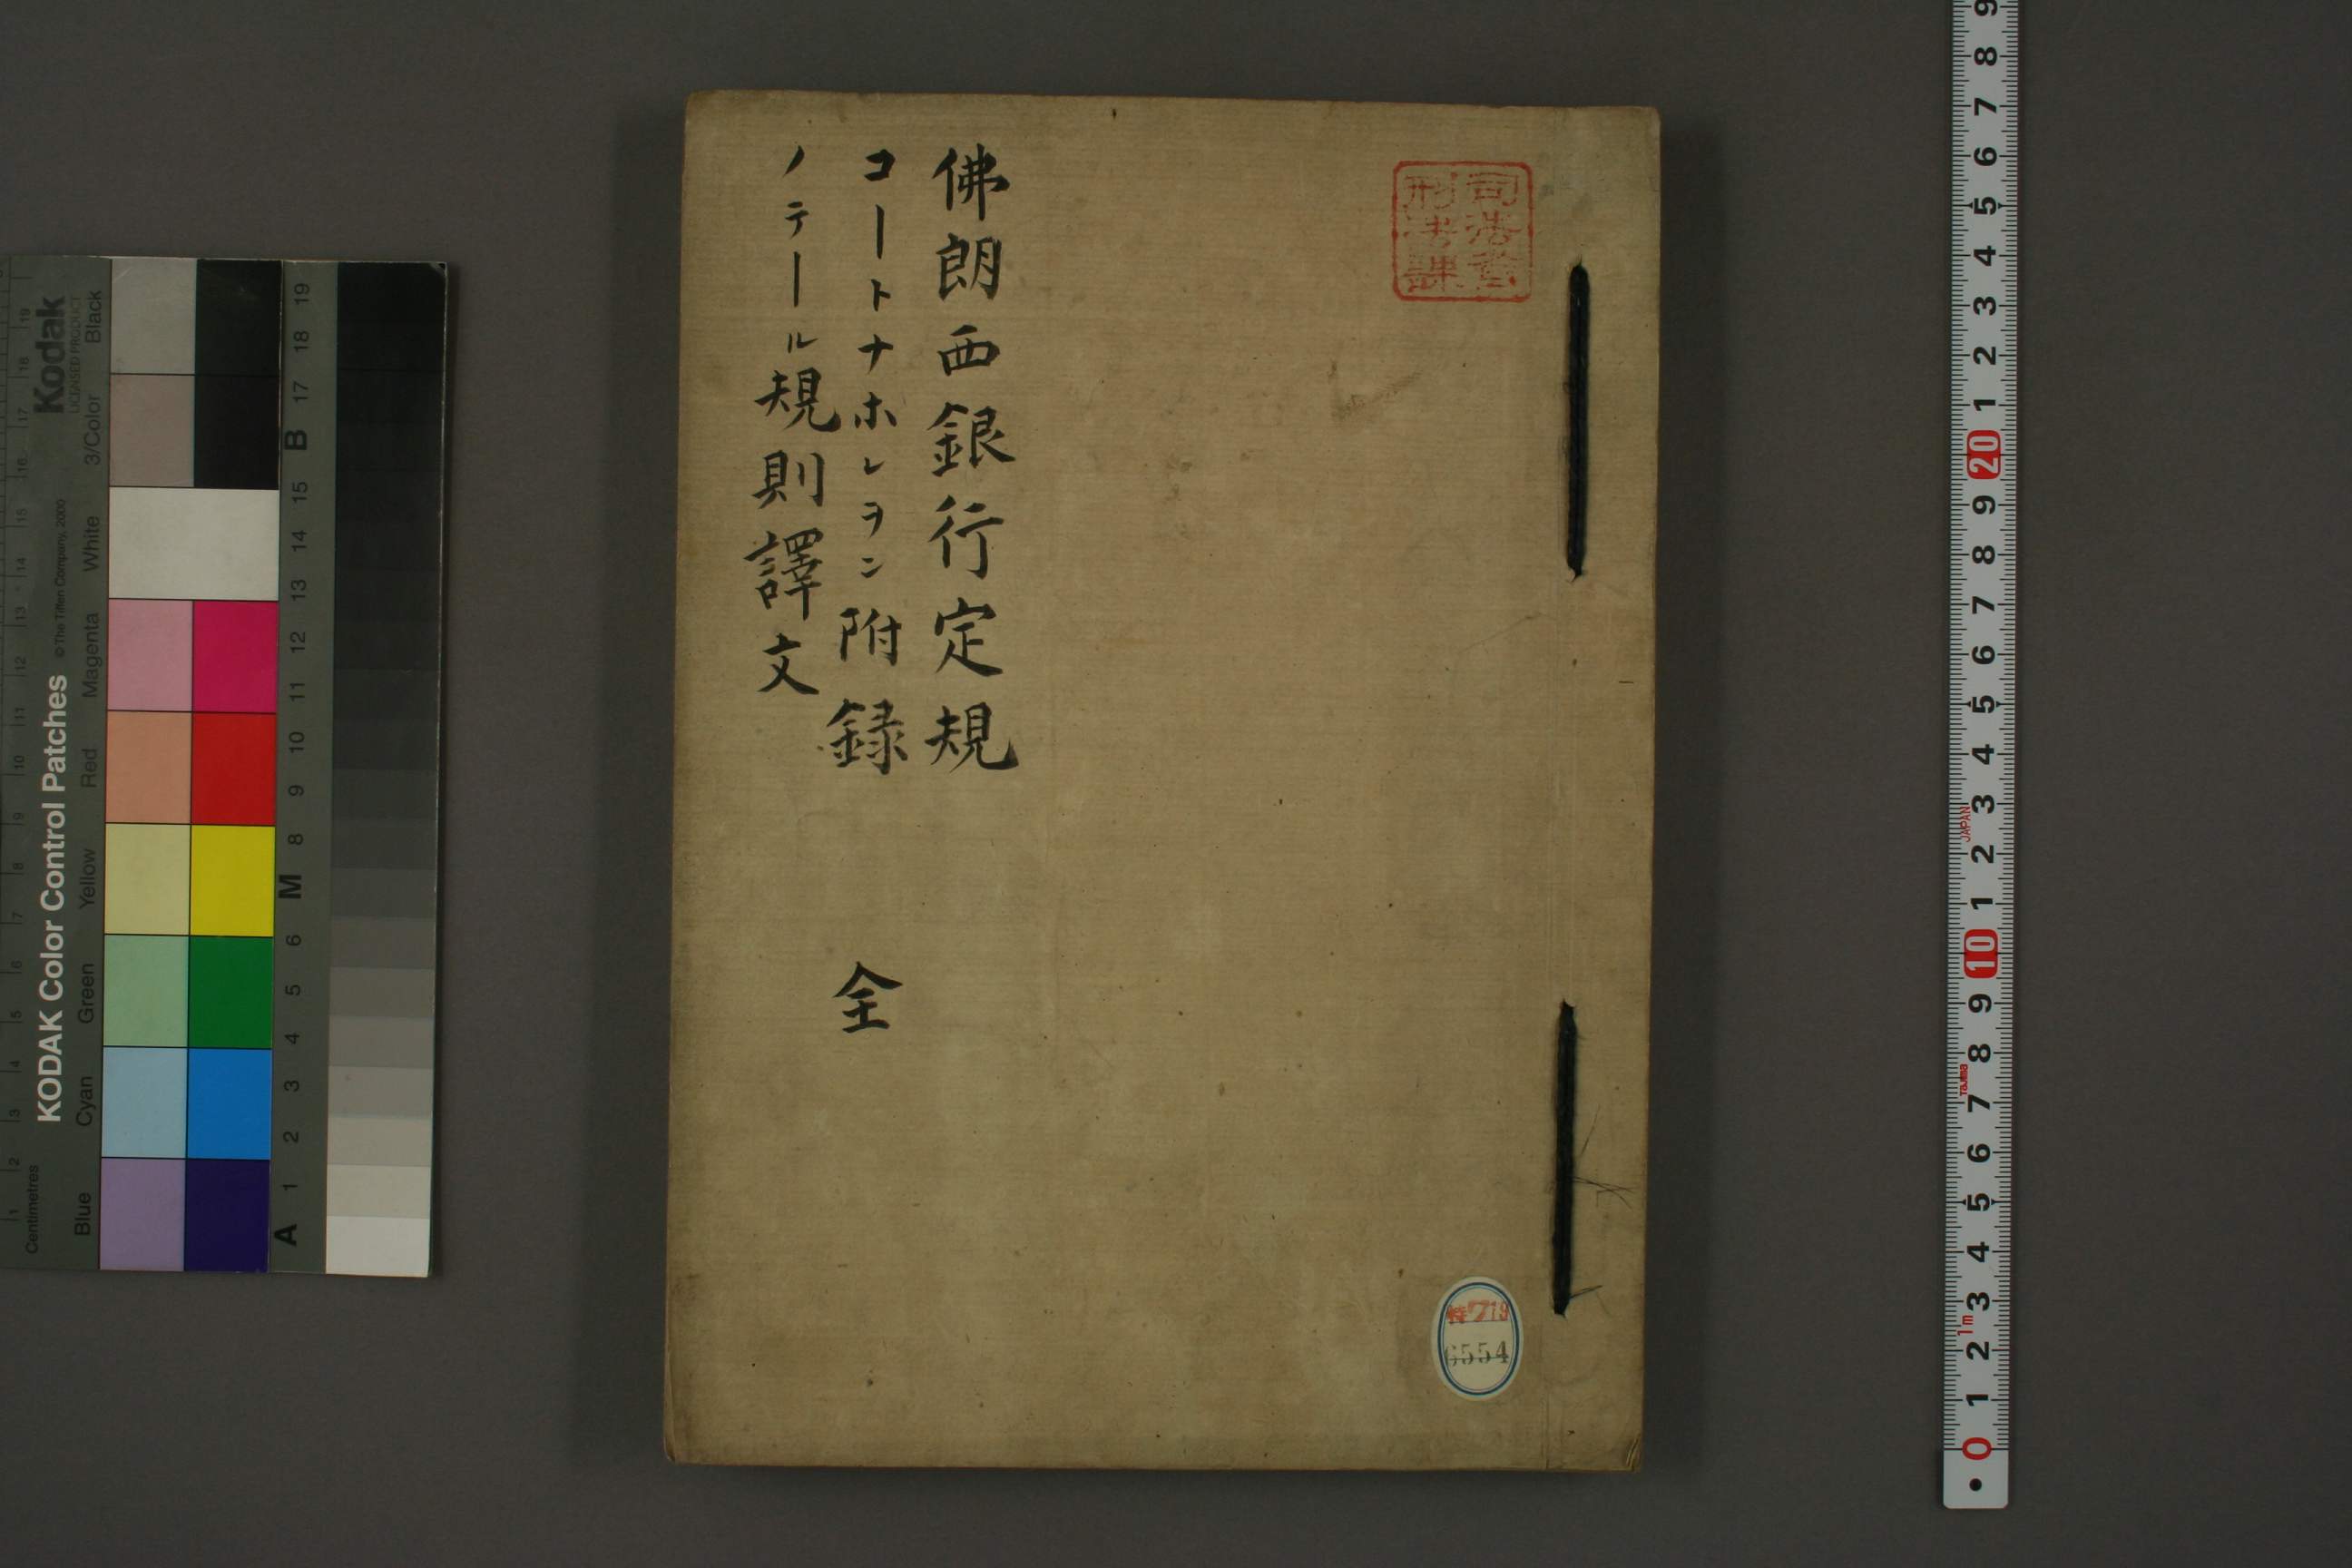 佛朗西銀行定規
コートナホレヲン附録
ノテール規則譯文
全
司法省
刑法課
特719
6554
Kodak
LICENSED PRODUCT
KODAK Color Control Patches
© The Tiffen Company, 2000
Centimetres
Blue Cyan Green Yellow Red Magenta White 3/Color Black
1 2 3 4 5 6 7 8 9 10 11 12 13 14 15 16 17 18 19
A 1 2 3 4 5 6 M 8 9 10 11 12 13 14 15 B 17 18 19
9 8 7 6 5 4 3 2 1 20 9 8 7 6 5 4 3 2 1 10 9 8 7 6 5 4 3 2 1 0
JAPAN
Tajima
1m